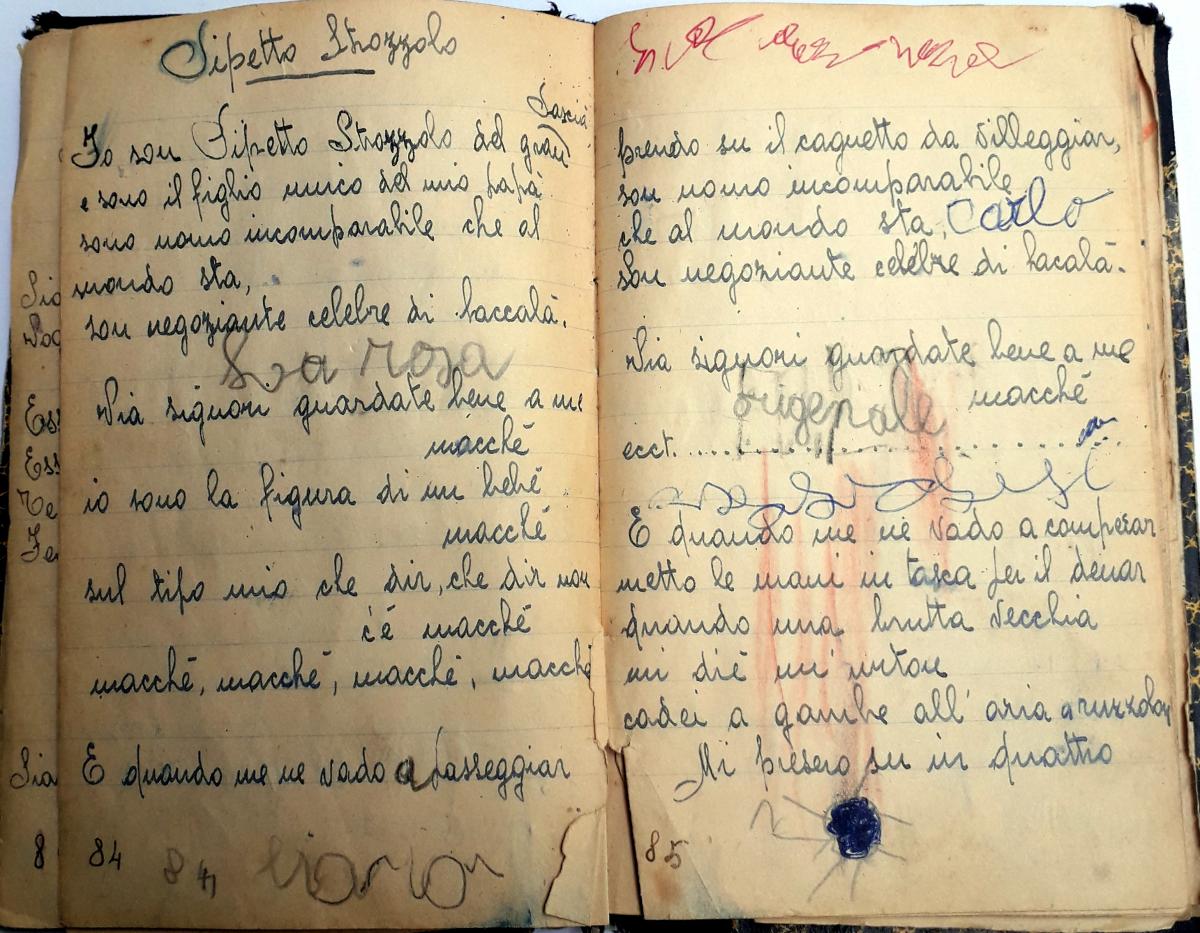 Pipetto Strozzolo
Pascià
Io son Pipetto Strozzolo del gran
e sono il figlio unico del mio papà
sono uomo incomparabile che al
mondo sta,
son negoziante celebre di baccalà.
La rosa
Via signori guardate bene a me
macché
io sono la figura di un bebé
macché
sul tipo mio che dir, che dir non
c'é macché
macché, macché, macché, macché
E quando me ne vado a passeggiar
84
84
prendo su il caguetto da villeggiar,
son uomo incomparabile
che al mondo sta, Carlo
Son negoziante celebre di bacalà.
Via signori guardate bene a me
macché
frigepale
ecct. ..........................
E quando me ne vado a comperar
metto le mani in tasca per il denar
quando una brutta vecchia
mi dié un'urton
cadei a gambe all'aria a ruzzolon
Mi presero su in quattro
85
Sia
8